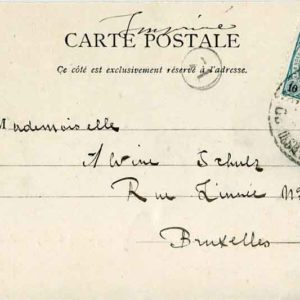 Imprimé
CARTE POSTALE
Ce côté est exclusivement réservé à l'adresse.
Mademoiselle
Alvine Schulz
Rue Linnée No
Bruxelles
10